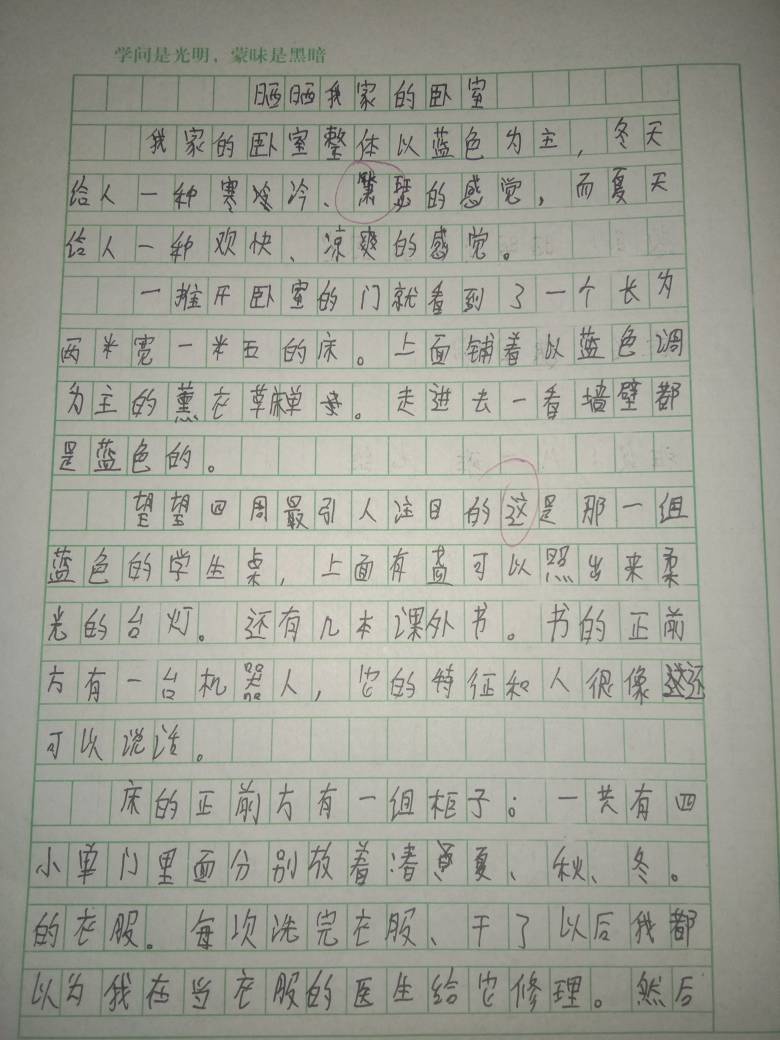 学问是光明，蒙昧是黑暗
晒晒我家的卧室
我家的卧室整体以蓝色为主，冬天
给人一种寒冷、瑟的感觉，而夏天
给人一种欢快、凉爽的感觉。
一推开卧室的门就看到了一个长为
两米宽一米五的床。上面铺着以蓝色调
为主的薰衣草床单。走进去一看墙壁都
是蓝色的。
望望四周最引人注目的这是那一组
蓝色的学生桌，上面有盏可以照出来柔
光的台灯。还有几本课外书。书的正前
方有一台机器人，它的特征和人很像还
可以说话。
床的正前方有一组柜子；一共有四
小单门里面分别放着春夏、秋、冬。
的衣服。每次洗完衣服、干了以后我都
以为我在当衣服的医生给它修理。然后